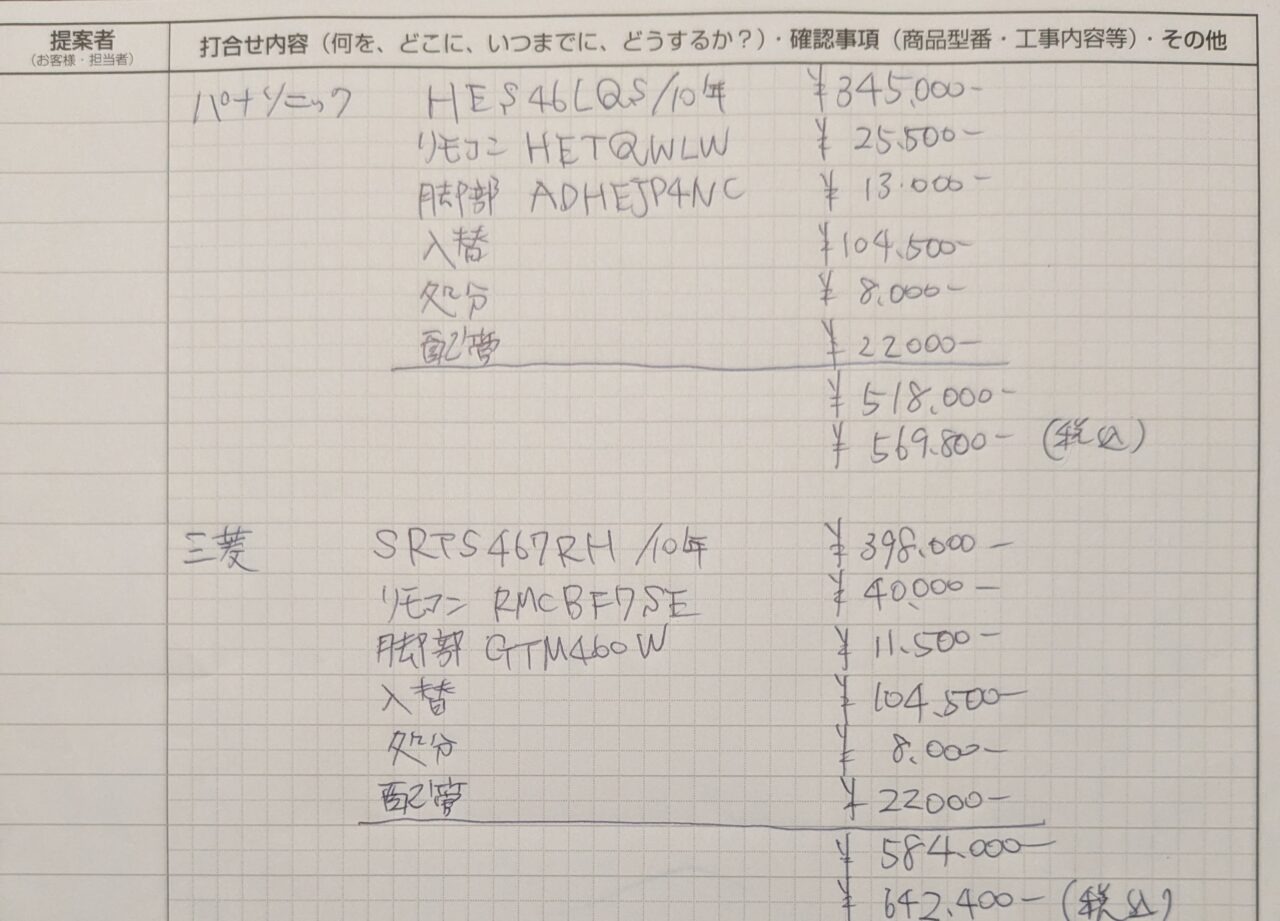 提案者
(お客様・担当者)
打合せ内容（何を、どこに、いつまでに、どうするか？）・確認事項（商品型番・工事内容等）・その他
パナソニック HES46LQS/10年 ¥345.000-
リモコン HETQWLW ¥25.500-
脚部 ADHEJP4NC ¥13.000-
入替 ¥104.500-
処分 ¥8.000-
配管 ¥22000-
¥518.000-
¥569.800- (税込)
三菱 SRTS467RH/10年 ¥398.000-
リモコン RMCBF7SE ¥40.000-
脚部 GTM460W ¥11.500-
入替 ¥104.500-
処分 ¥8.000-
配管 ¥22000-
¥584.000-
¥642.400- (税込)